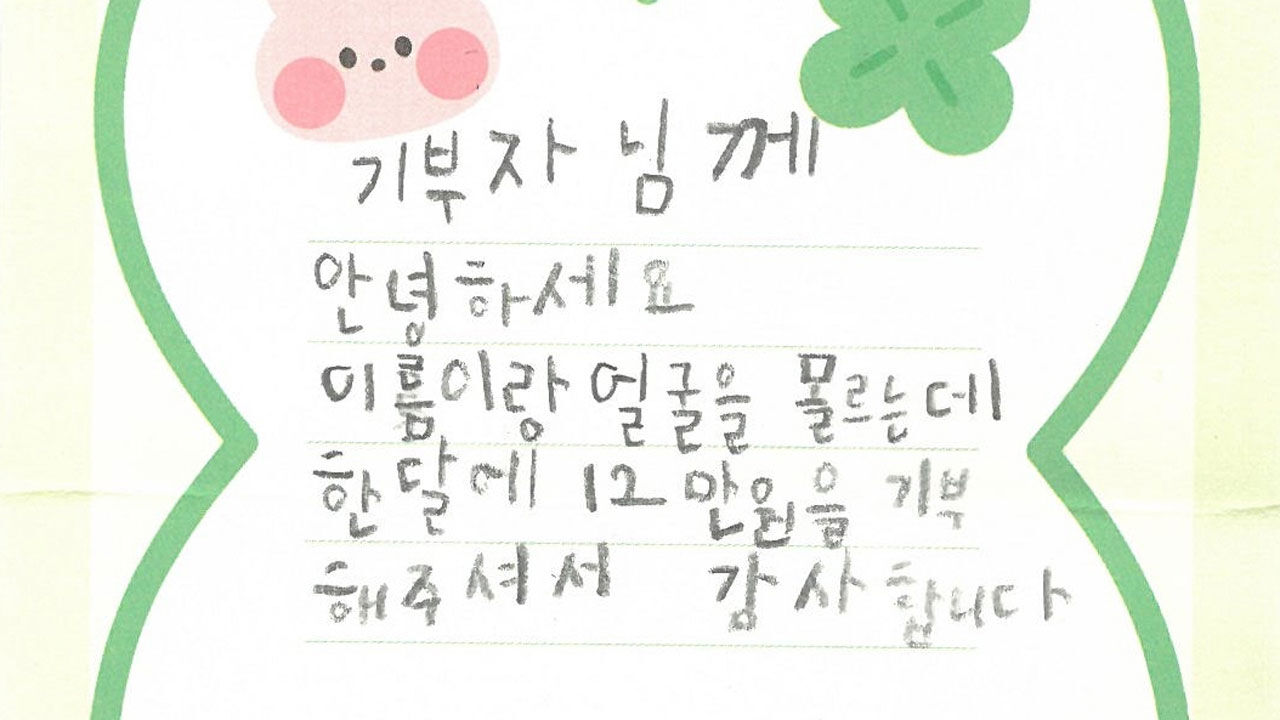 기부자 님 께
안녕하세요
이름이랑 얼굴을 몰르는데
한달에 12만원을 기부
해주셔서 감사합니다